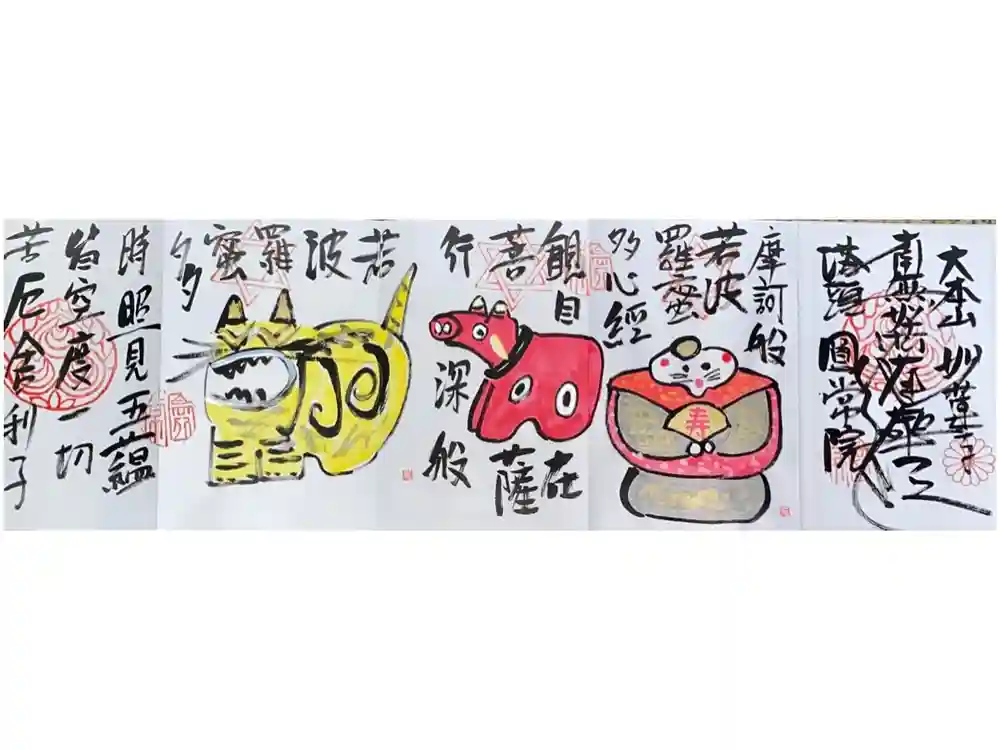 大本山 妙蓮寺
南無妙法蓮華経
塔頭 圓常院
摩訶般
若波
羅蜜
多心經
寿
觀自在
菩薩
行深般
若波羅蜜多
時照見五蘊
皆空度一切
苦厄舎利子